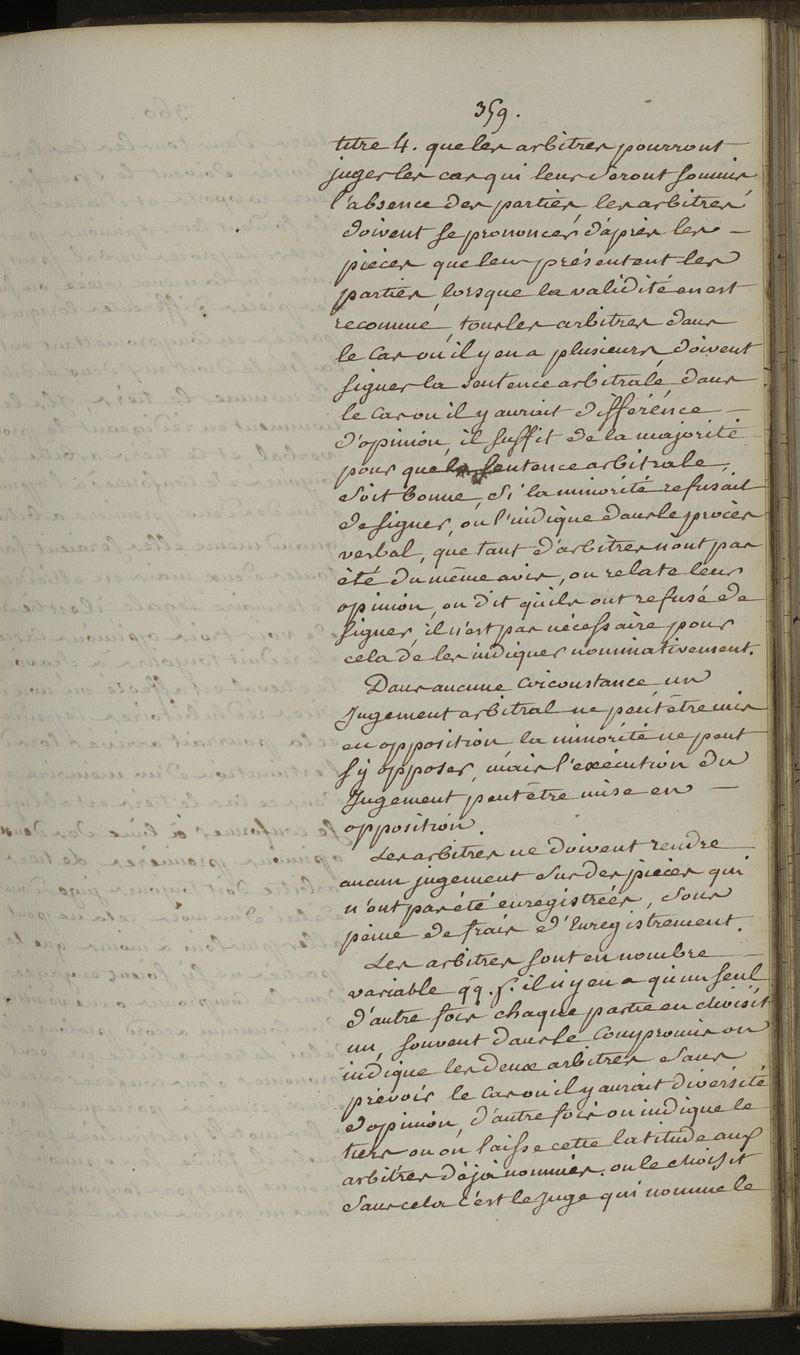 359.
titre 4. que les arbitres pourront
juger les cas qui leur seront soumis
l'absence des parties les arbitres
doivent se prononcer d'après les
pièces que leur présentent les
parties, lorsque la validité en est
reconnue, tous les arbitres dans
le cas où il y en a plusieurs doivent
signer la sentence arbitrale, dans
le cas où il y aurait différence
d'opinion, il suffit de la majorité
pour que la sentence arbitrale,
soit bonne, si la minorité refusait
de signer, on l'indique dans le procès
verbal, que tant d'arbitres n'ont pas
été du même avis, on relate leur
opinion, on dit qu'ils ont refusé de
signer, il n'est pas nécessaire pour
cela de les indiquer nominativement.
Dans aucune circonstance, un
Jugement arbitral ne peut être mis
en opposition, la minorité ne peut
s'y opposer, mais l'exécution du
Jugement peut être mise en
opposition.
Les arbitres ne doivent rendre
aucun jugement sur des pièces qui
n'ont pas été enregistrées, sous
peine de frais d'Enregistrement.
Les arbitres sont en nombre
variable qq. f. il n'y en a qu'un seul
d'autre fois chaque partie en choisit
un, souvent dans le Compromis on
indique les deux arbitres sans
prévoir le cas où il y aurait diversité
d'opinion, d'autre fois on indique le
tiers ou on laisse cette latitude aux
arbitres déjà nommés. on le choisit
sans cela c'est le Juge qui nomme le